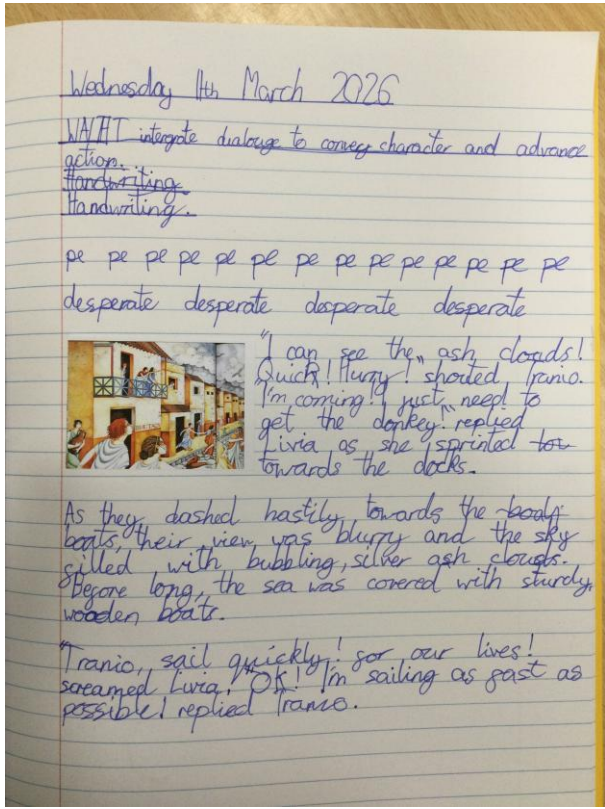 Wednesday 11th March 2026
WALHT intergrate dialouge to convey character and advance
action.
Handwriting
Handwriting.
pe pe pe pe pe pe pe pe pe pe pe pe pe pe pe
desperate desperate desperate desperate
"I can see the ash clouds!
Quick! Hurry!" shouted Tranio.
I'm coming! I just need to
get the donkey!" replied
Livia as she sprinted tow
towards the docks.
As they dashed hastily towards the body
boats, their view was blurry and the sky
filled with bubbling, silver ash clouds.
Before long, the sea was covered with sturdy,
wooden boats.
"Tranio, sail quickly! for our lives!
screamed Livia! "OK! I'm sailing as fast as
possible! replied Tranio.